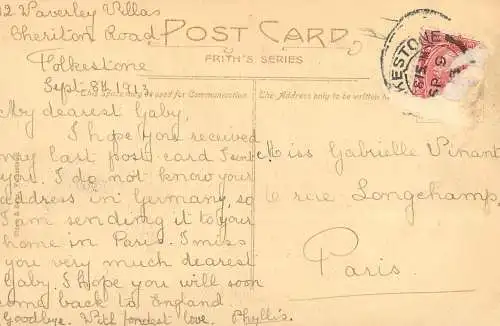 2 Waverley Villas
Cheriton Road
Folkestone
Sept. 8th 1913
POST CARD
FRITH'S SERIES
This Space may be used for Communication
The Address only to be written here
My dearest Gaby,
I hope you received
my last post card I sent
you. I do not know your
address in Germany, so
I am sending it to your
home in Paris. I miss
you very much dearest
Gaby. I hope you will soon
come back to England.
Goodbye. With fondest love. Phyllis.
Miss Gabrielle Vinant
rue Longchamp,
Paris.
KESTONE
SP 9